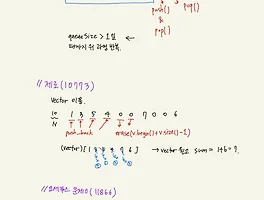 push()
&
pop()
queue size > 1 일
때까지 위 과정 반복.
// 제로 (10773)
vector 이용.
10 1 3 5 4 0 0 7 0 0 6
N
push_back
erase(v.begin()+v.size()-1)
(vector) [ 1 3 5 4 7 6 ] → vector 원소 sum = 1+6=7.
// 요세푸스 문제0 (11866)